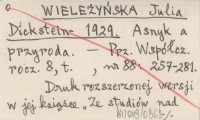 WIELEŻYŃSKA Julia
Dickstein- 1929. Asnyk a
przyroda. — Prz. Współcz.
rocz. 8, t. , nr 88: 257-281.
Druk rozszerzonej wersji
w jej książce „Ze studiów nad